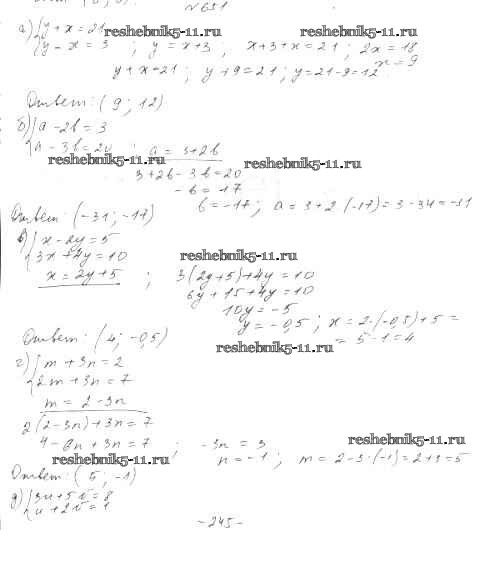 № 651
а) { y + x = 21 reshebnik5-11.ru reshebnik5-11.ru
y - x = 3 ; y = x+3 ; x+3+x = 21 ; 2x = 18
x = 9
y + x = 21 ; y + 9 = 21 ; y = 21-9 = 12
Ответ: (9; 12)
б) { a - 2b = 3
a - 3b = 20 ; a = 3+2b
reshebnik5-11.ru reshebnik5-11.ru
3 + 2b - 3b = 20
-b = 17
b = -17 ; a = 3 + 2·(-17) = 3 - 34 = -31
Ответ: (-31; -17)
в) { x - 2y = 5
3x + 4y = 10 reshebnik5-11.ru
x = 2y + 5 ; 3(2y+5) + 4y = 10
6y + 15 + 4y = 10
10y = -5
y = -0,5 ; x = 2·(-0,5) + 5 =
= 5 - 1 = 4
Ответ: (4; -0,5)
reshebnik5-11.ru
г) { m + 3n = 2
2m + 3n = 7
m = 2 - 3n
2(2-3n) + 3n = 7
4 - 6n + 3n = 7 ; -3n = 3 reshebnik5-11.ru
reshebnik5-11.ru n = -1 ; m = 2 - 3·(-1) = 2+3 = 5
Ответ: (5; -1)
д) { 3u + 5v = 8
u + 2v = 1
- 245 -